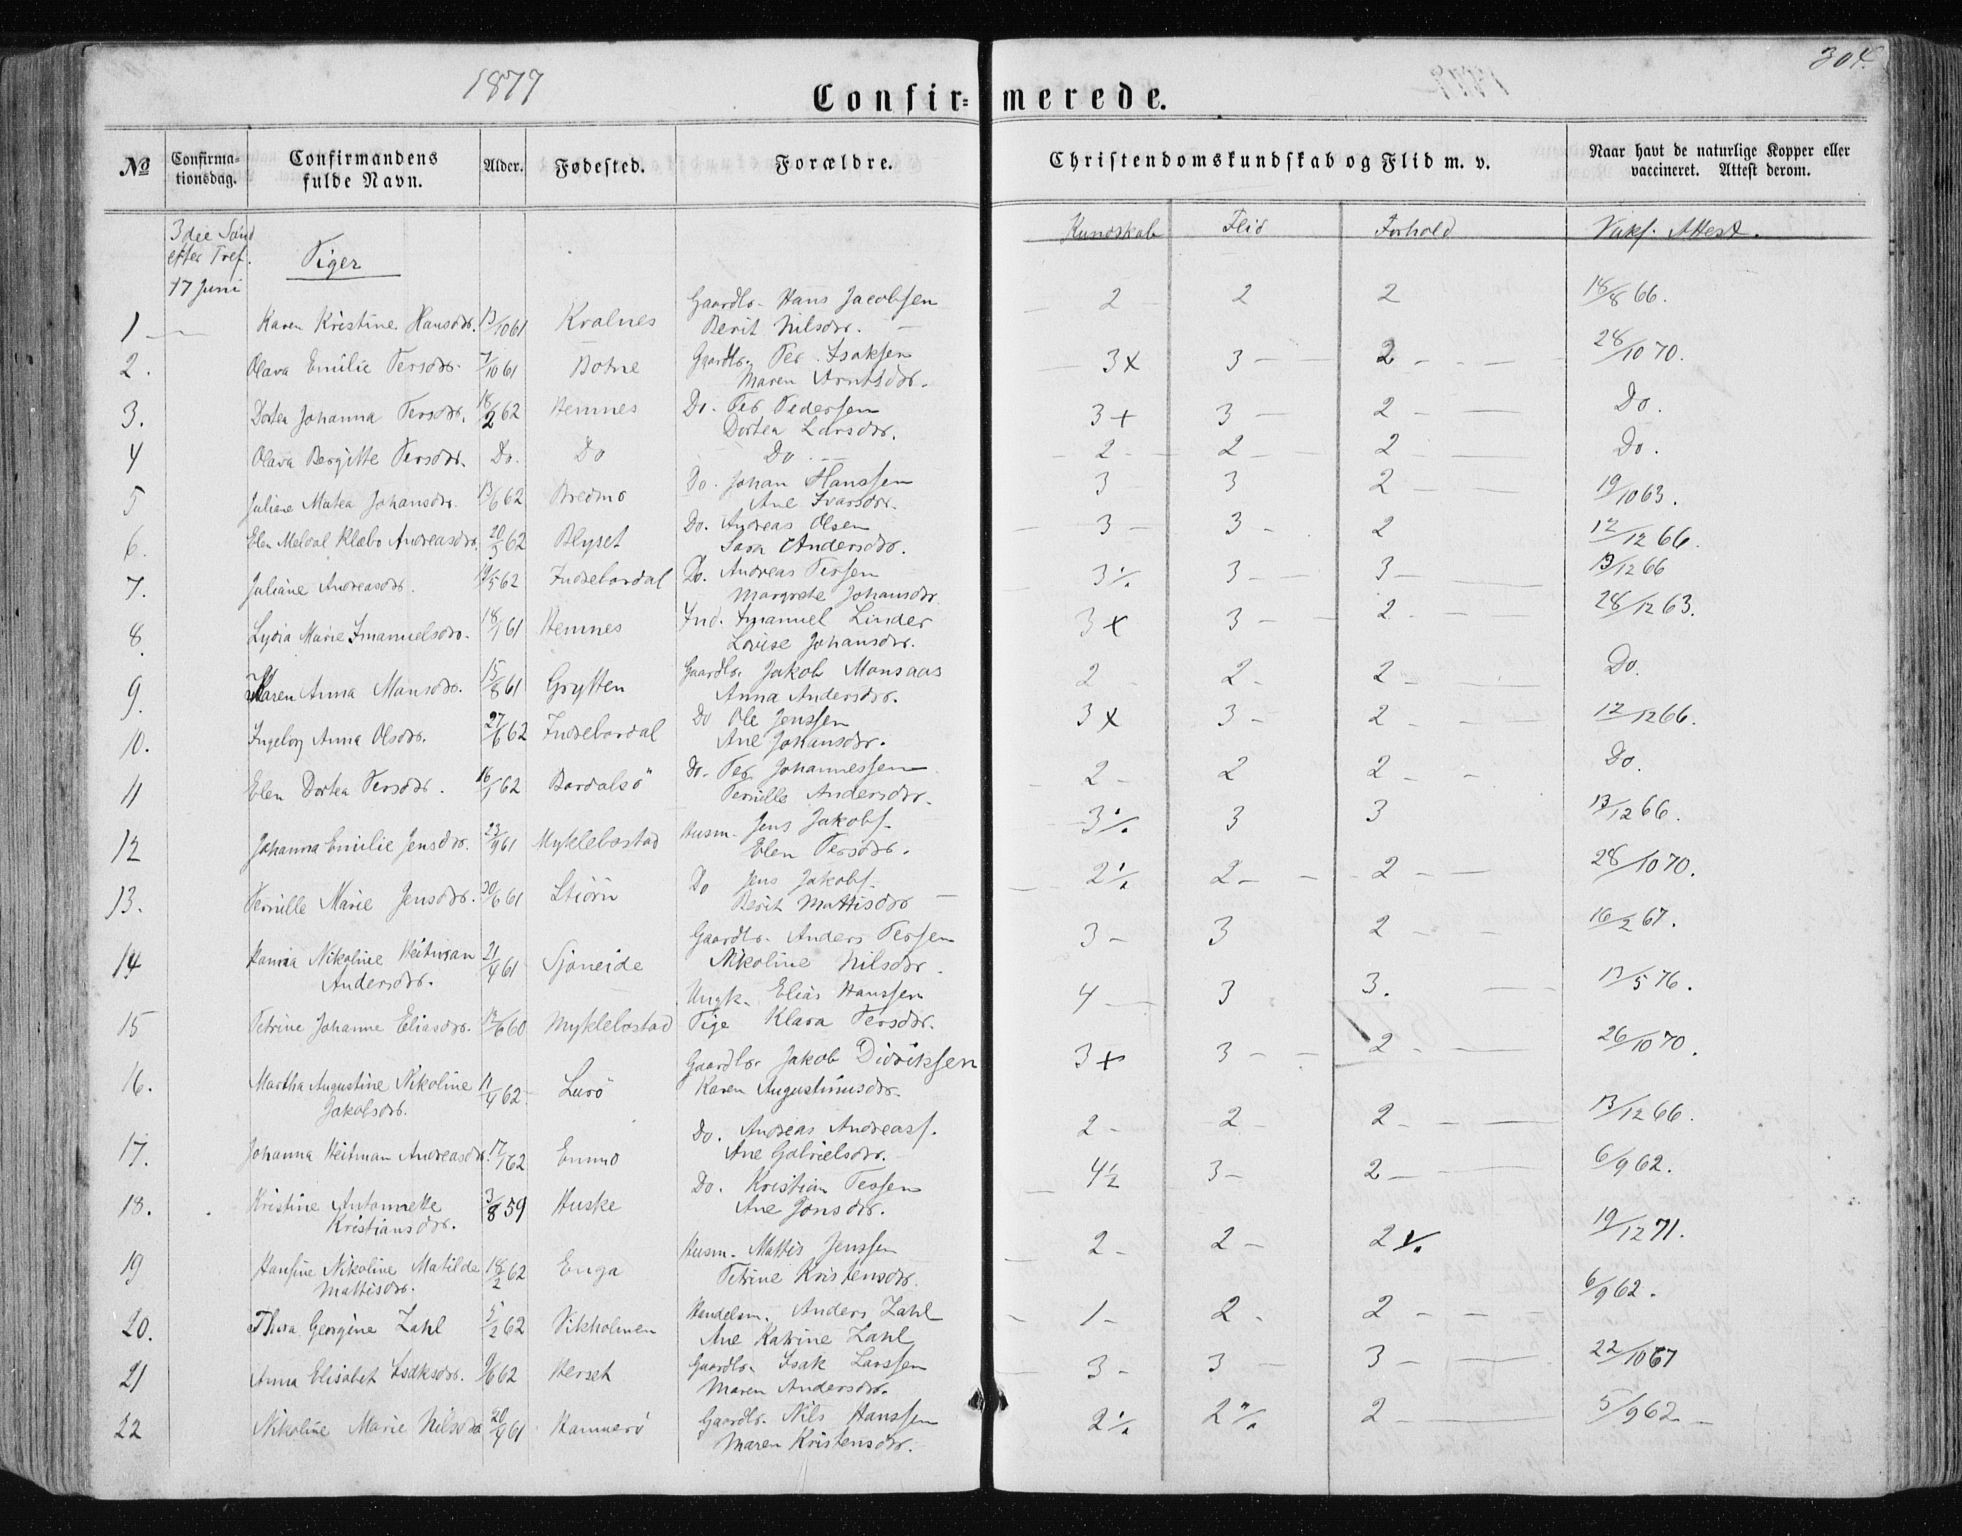 1877
304.
Confir= merede.
No
Confirma-
tionsdag.
Confirmandens
fulde Navn.
Alder.
Fødested.
Forældre.
Christendomskundskab og Flid m. v.
Naar havt de naturlige Kopper eller
vaccineret. Attest deom.
3die Sønd
efter Tref.
17 Juni
Piger
Kundskab Flid Forhold Vaks. Attest.
1 Karen Kristine Hansdtr. 13/10 61 Kralnes Gaardbr. Hans Jacobsen 2 2 2 18/8 66.
Berit Nilsdtr.
2. Olava Emilie Persdtr. 7/10 61 Botne Gaardbr. Per Isaksen 3x 3 2 28/10 70.
Maren Arntsdtr.
3. Dortea Johanna Persdtr. 18/2 62 Hemnes Do. Per Pedersen 3+ 3 2 Do.
Dortea Larsdtr.
4 Olava Bergitte Persdtr. Do. Do Do 2 2 2 Do.
5 Juliane Matea Johansdtr. 13/6 62 Bredmo Do. Johan Hanssen 3 3 2 19/10 63.
Ane Ivarsdtr.
6. Elen Meldal Klæbo Andreasdtr. 20/3 62 Blyset Do. Andreas Olsen 3 3 2 12/12 66.
Sara Andersdtr.
7. Juliane Andreasdtr. 19/5 62 Indrebardal Do. Andreas Persen 3 3 3 13/12 66
Margrete Johansdtr.
8. Lydia Marie Imanuelsdtr. 18/1 61 Hemnes Ind. Imanuel Linder 3x 3 2 28/12 63.
Lovise Johansdtr.
9. Karen Anna Mansdtr. 15/8 61 Grytten Gaardbr. Jakob Mansaas 2 2 2 Do.
Anna Andersdtr.
10. Ingeborg Anna Olsdtr. 27/6 62 Indrebardal Do Ole Jenssen 3x 3 2 12/12 66.
Ane Johansdtr.
11 Elen Dortea Persdtr. 16/1 62 Bardalsö Do. Per Johannessen 2 2 2 Do.
Pernille Andersdtr.
12 Johanna Emilie Jensdtr. 23/9 61 Myklebostad Husm. Jens Jakobs. 3 3 3 13/12 66.
Elen Persdtr.
13. Pernille Marie Jensdtr. 30/6 61 Stiörn Do Jens Jakobs. 2 2 2 28/10 70.
Berit Mattisdtr
14 Nikoline Heitman 21/4 61 Sjoneide Gaardbr. Anders Persen 3 3 2 16/2 67.
Andersdtr. Nikoline Nilsdtr.
15 Petrine Johanne Eliasdtr. 60 Myklebostad Ungk. Elias Hanssen 4 3 3. 13/5 76.
Pige Klara Persdtr.
16. Martha Augustine Nikoline 11/4 62 Lurö Gaardbr Jakob Didriksen 3+ 3 2 26/10 70.
Jakobsdtr. Karen Augustinusdtr.
17. Johanna Heitman Andreasdtr. 17/1 62 Enmo Do. Andreas Andreass. 2 2 2 13/12 66.
Ane Gabrielsdtr.
18. Kristine Antonnette 3/8 59 Huske Do. Kristian Persen 4½ 3 2 6/9 62.
Kristiansdtr. Ane Jonsdtr.
19 Hansine Nikoline Matilde 18/2 62 Enga Husm. Mattis Jenssen 2 2 2 19/12 71.
Mattisdtr. Petrine Kristensdtr.
20. Thora Georgine Zahl 5/2 62 Vikholmen Handelsm. Anders Zahl 1 2 2 6/9 62.
Ane Katrine Zahl
21 Anna Elisabet Isaksdtr. 9/6 62 Herset Gaardbr. Isak Larssen 3 3 3 22/10 67
Maren Andersdtr.
22 Nikoline Marie Nilsdtr 20/9 61 Hammerö Gaardbr. Nils Hanssen 2 2 2 5/9 62
Maren Kristensdtr.